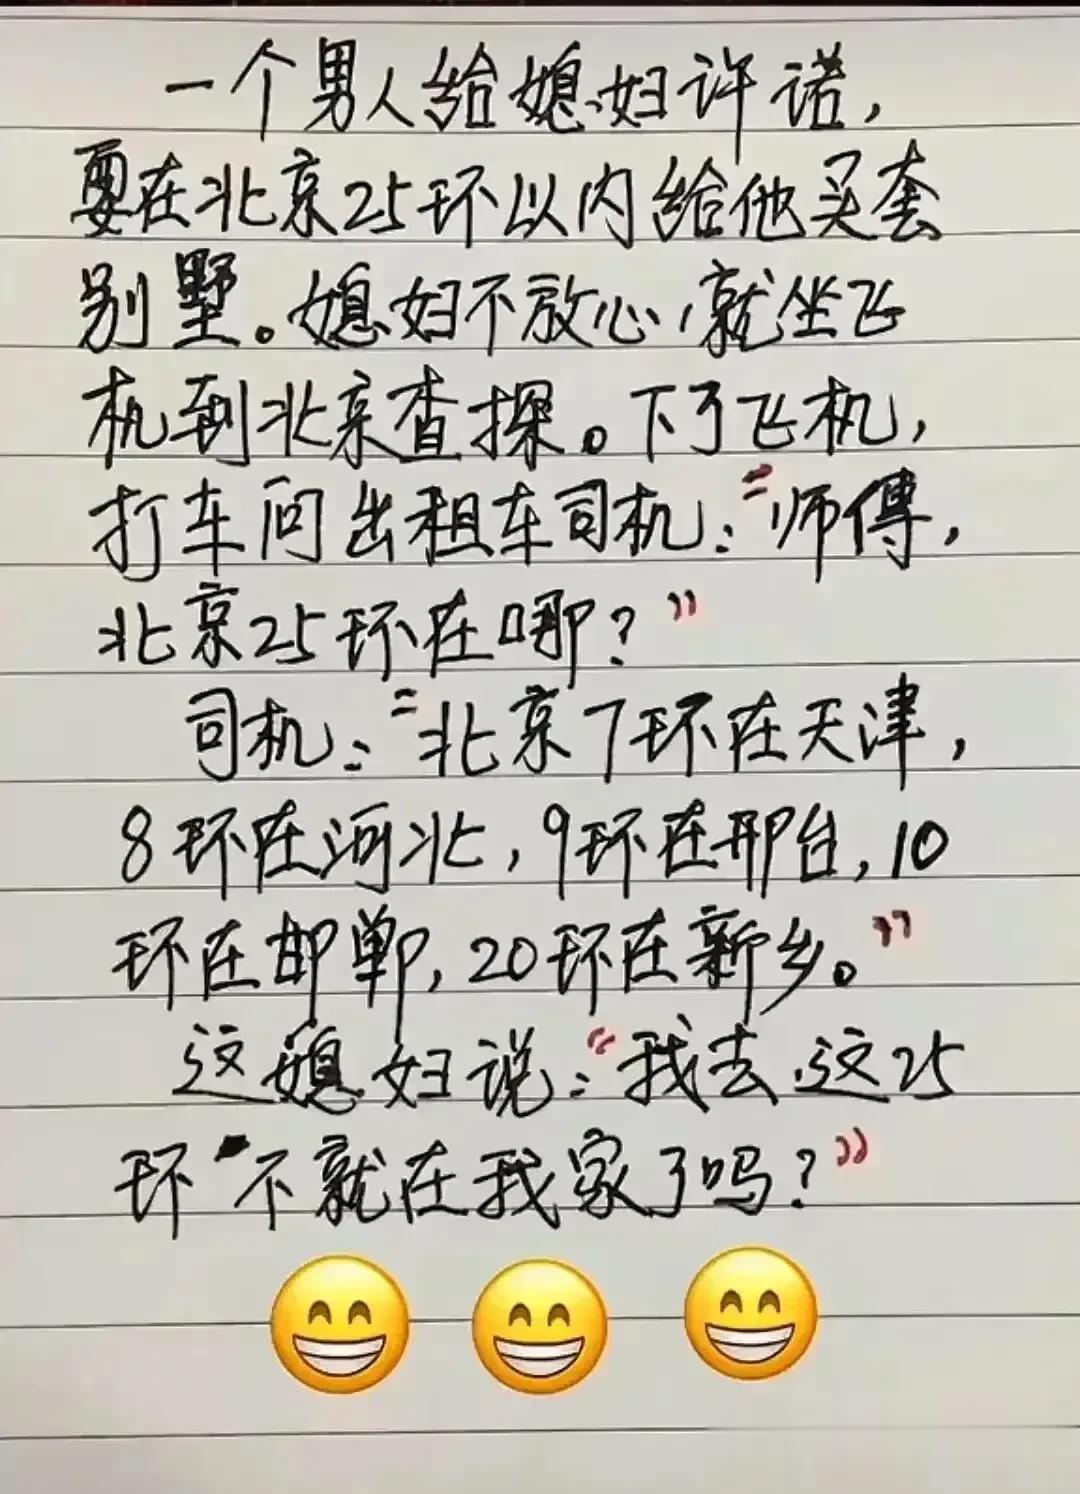 一个男人给媳妇许诺，
要在北京25环以内给他买套
别墅。媳妇不放心，就坐飞
机到北京查探。下了飞机，
打车问出租车司机："师傅，
北京25环在哪？"
司机："北京7环在天津，
8环在河北，9环在邢台，10
环在邯郸，20环在新乡。"
这媳妇说："我去，这25
环不就在我家了吗？"